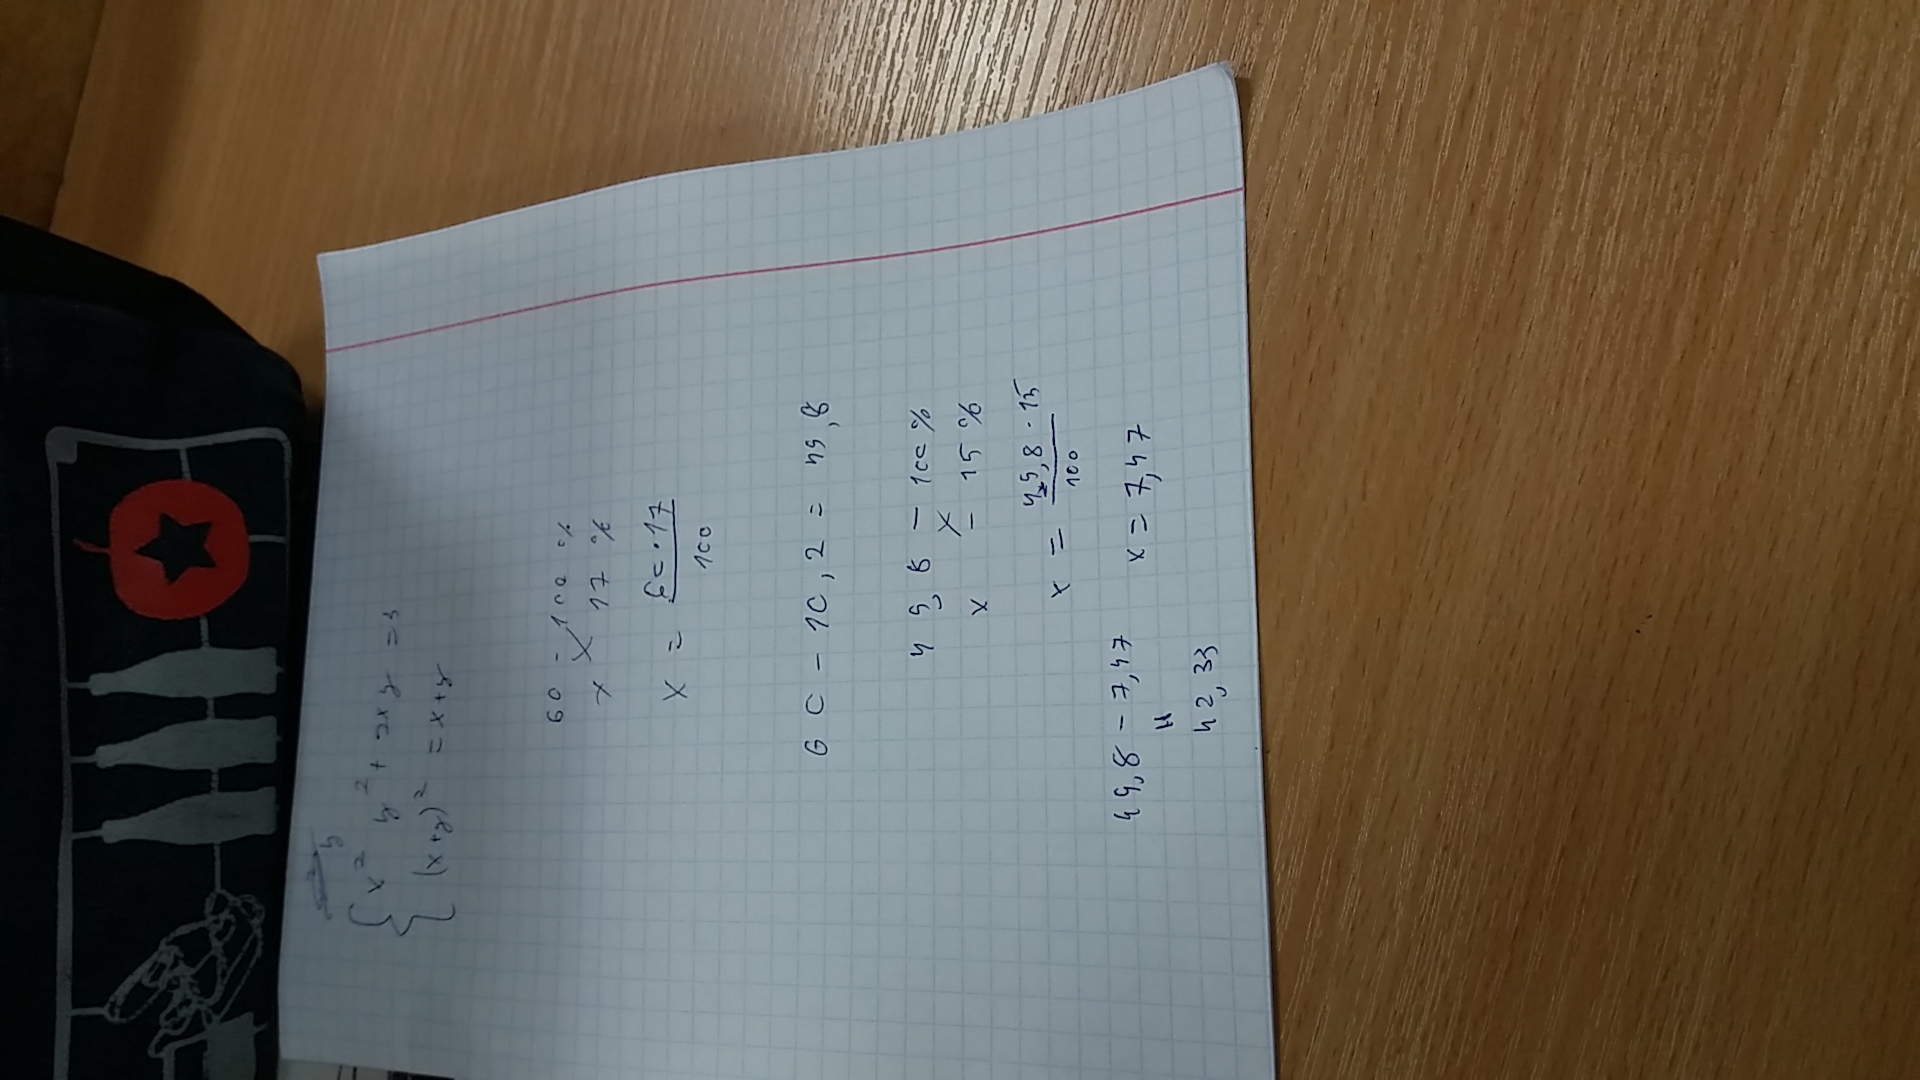 x² y² + 2xy = 3
(x+y)² = x+y
60 - 100 %
x 17 %
x = 60·17
100
60 - 10,2 = 49,8
49,8 - 100 %
x - 15 %
x = 49,8 · 15
100
49,8 - 7,47 x = 7,47
=
42,33